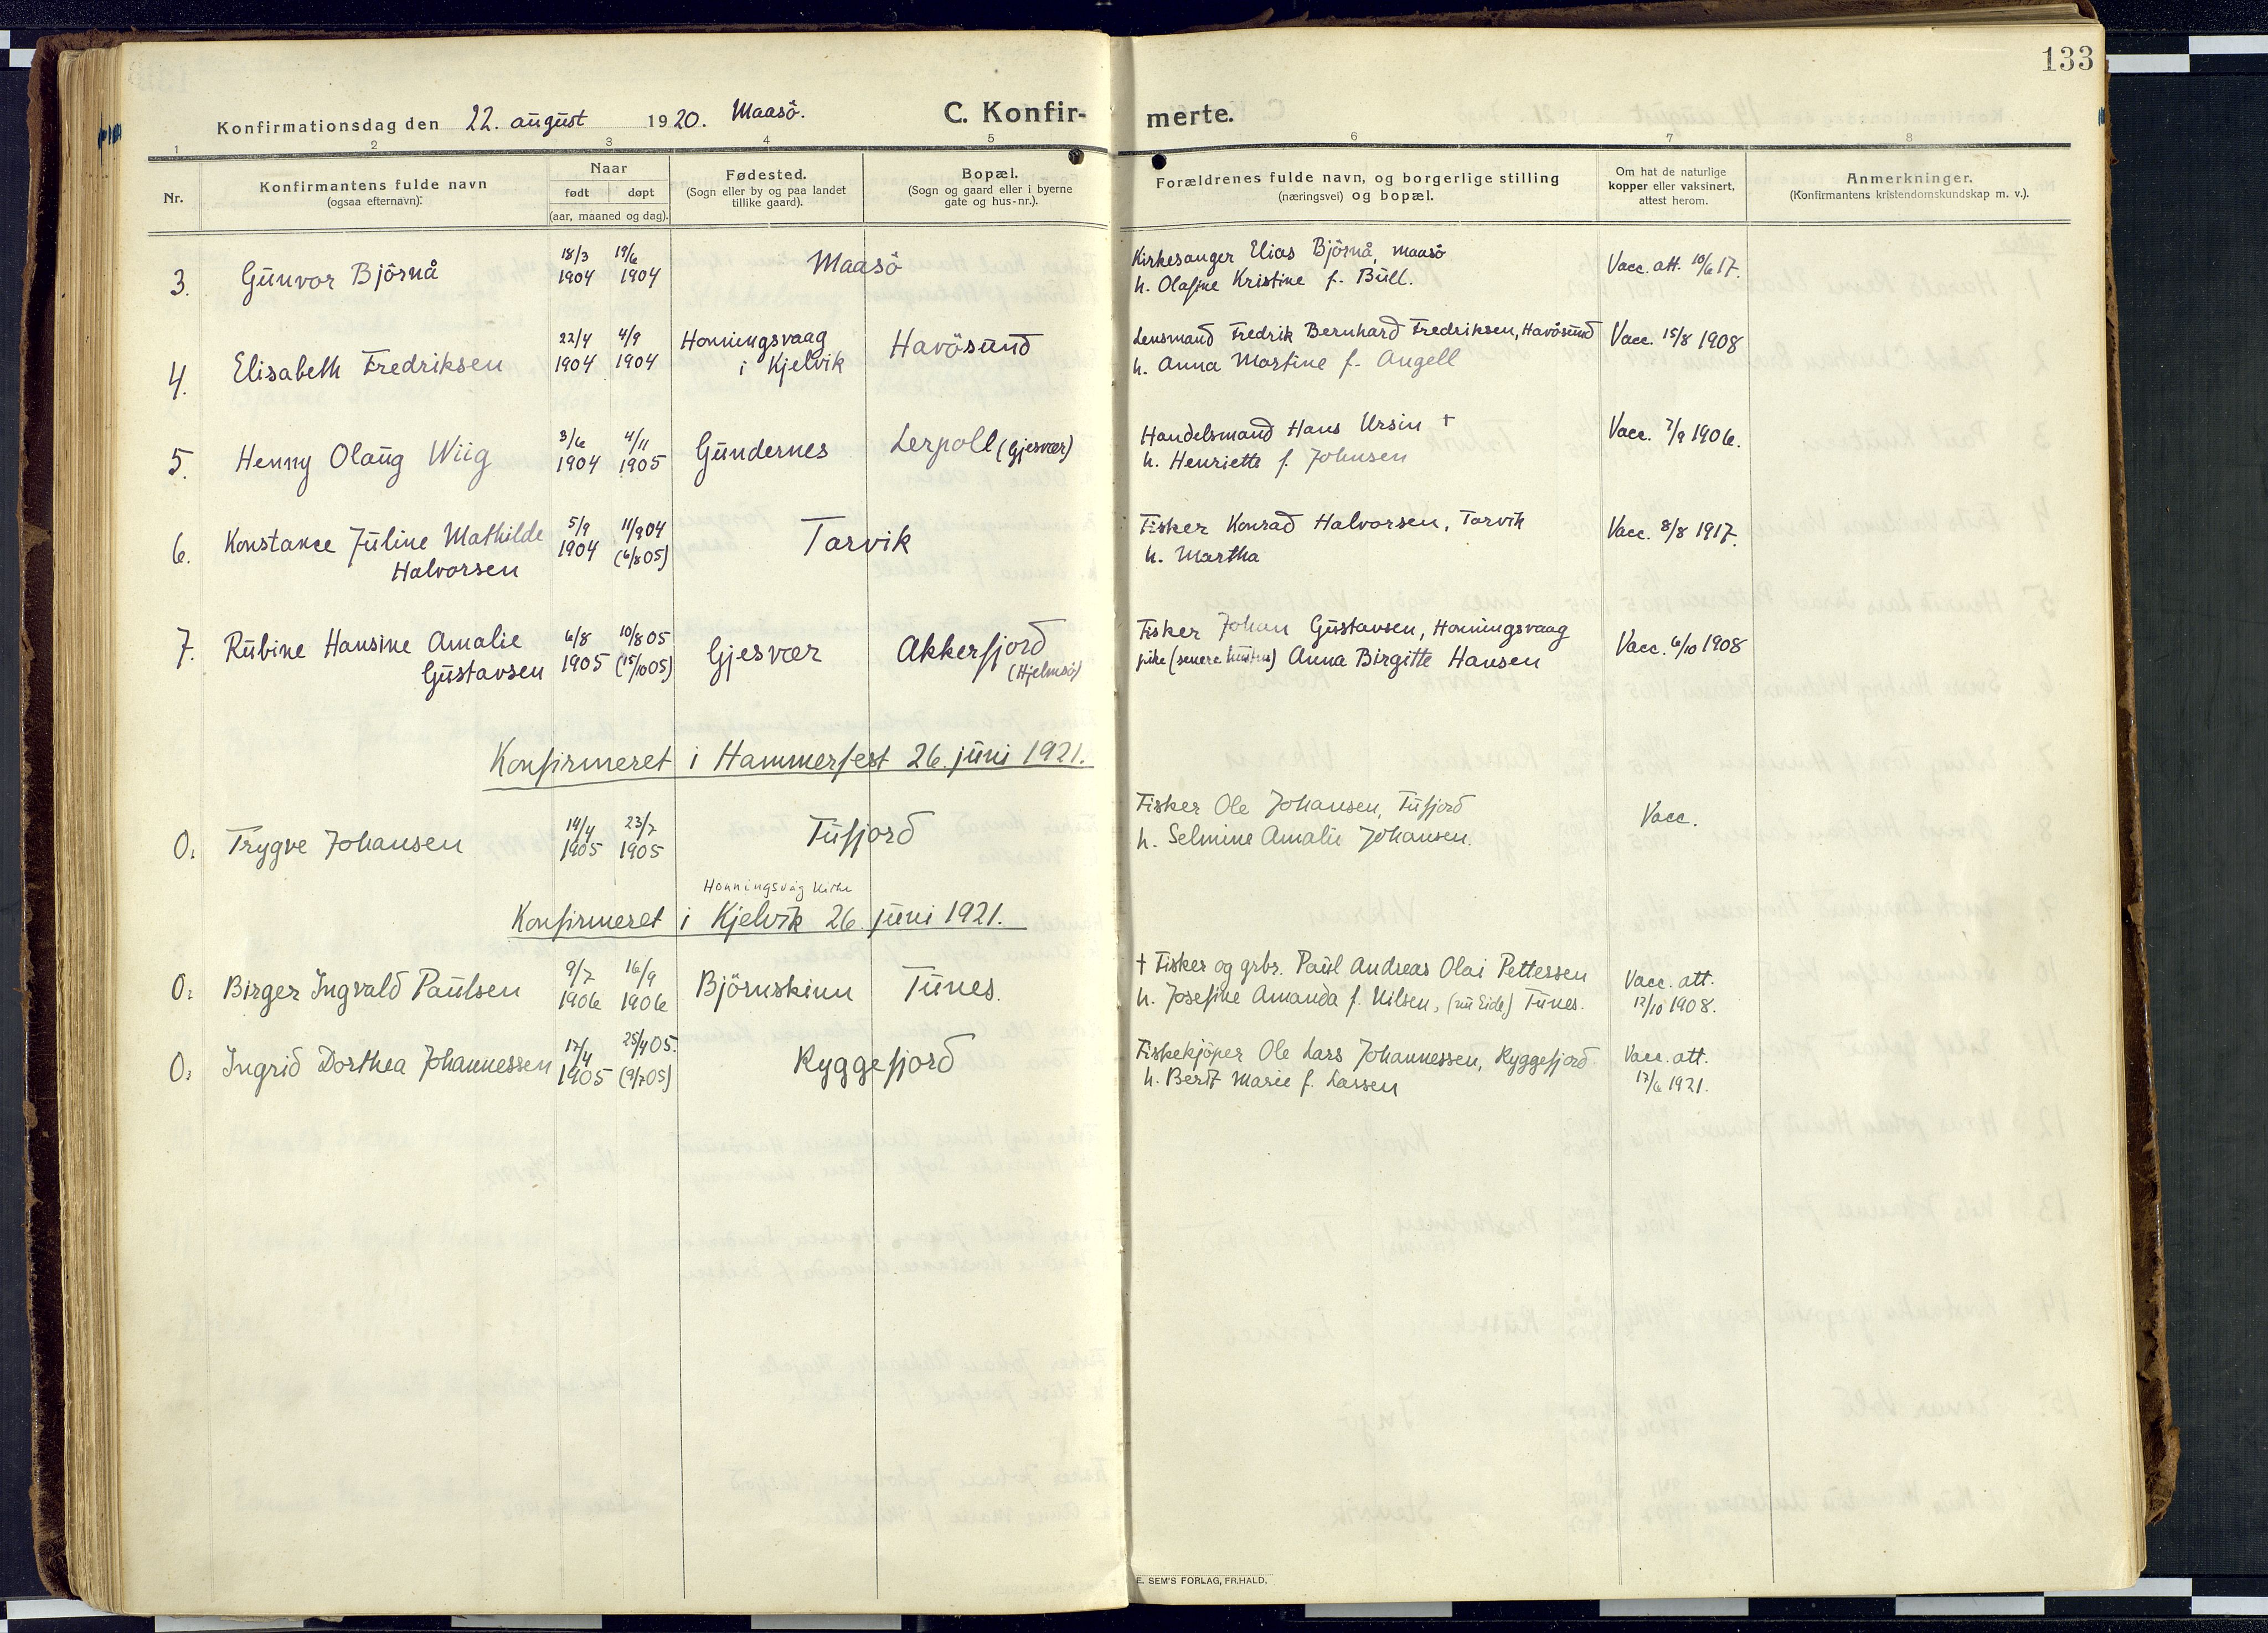 133
Konfirmationsdag den 22. august 1920. Maasö. C. Konfir- merte.
1 2 3 4 5 6 7 8
Nr.
Konfirmantens fulde navn
(ogsaa efternavn):
Naar
født døpt
(aar, maaned og dag).
Fødested.
(Sogn eller by og paa landet
tillike gaard).
Bopæl.
(Sogn og gaard eller i byerne
gate og hus-nr.).
Forældrenes fulde navn, og borgerlige stilling
(næringsvei) og bopæl.
Om hat de naturlige
kopper eller vaksinert,
attest herom.
Anmerkninger.
(Konfirmantens kristendomskundskap m. v.).
18/3 19/6 Kirkesanger Elias Björnå, Maasö
3. Gunvor Björnå 1904 1904 Maasö h. Olafine Kristine f. Bull. Vacc. att. 10/6 17.
22/4 4/9 Honningsvaag Havösund Lensmand Fredrik Bernhard Fredriksen, Havösund Vacc. 15/8 1908
4. Elisabeth Fredriksen 1904 1904 i Kjelvik h. Anna Martine f. Angell
3/6 4/11 Handelsmand Hans Ursin † Vacc. 7/9 1906.
5. Henny Olaug Wiig 1904 1905 Gundernes Lerpoll (Gjesvær) h. Henriette f. Johnsen
5/9 11/9 04 Fisker Konrad Halvorsen, Tarvik Vacc. 8/8 1917.
6. Konstance Juline Mathilde 1904 (6/8 05) Tarvik h. Martha
Halvorsen
6/8 10/8 05 Fisker Johan Gustavsen, Honningsvaag
7. Rubine Hansine Amalie 1905 (15/10 05) Gjesvær Akkerfjord pike (senere hustru) Anna Birgitte Hansen Vacc. 6/10 1908
Gustavsen (Hjelmsö)
Konfirmeret i Hammerfest 26. juni 1921.
14/4 23/7 Fisker Ole Johansen, Tufjord
0. Trygve Johansen 1905 1905 Tufjord h. Selmine Amalie Johansen. Vacc.
Honningsvåg kirke
Konfirmeret i Kjelvik 26. juni 1921.
9/7 16/9 † Fisker og grbr. Paul Andreas Olai Pettersen Vacc. att.
0. Birger Ingvald Paulsen 1906 1906 Björnskinn Tunes. h. Josefine Amanda f. Nilsen, (nu Eide) Tunes. 12/10 1908.
17/4 25/4 05. Fiskekjöper Ole Lars Johannessen, Ryggefjord Vacc. att.
0. Ingrid Dorthea Johannessen 1905 (9/7 05) Ryggefjord h. Berit Marie f. Larsen 17/6 1921.
E. SEM'S FORLAG, FR.HALD,